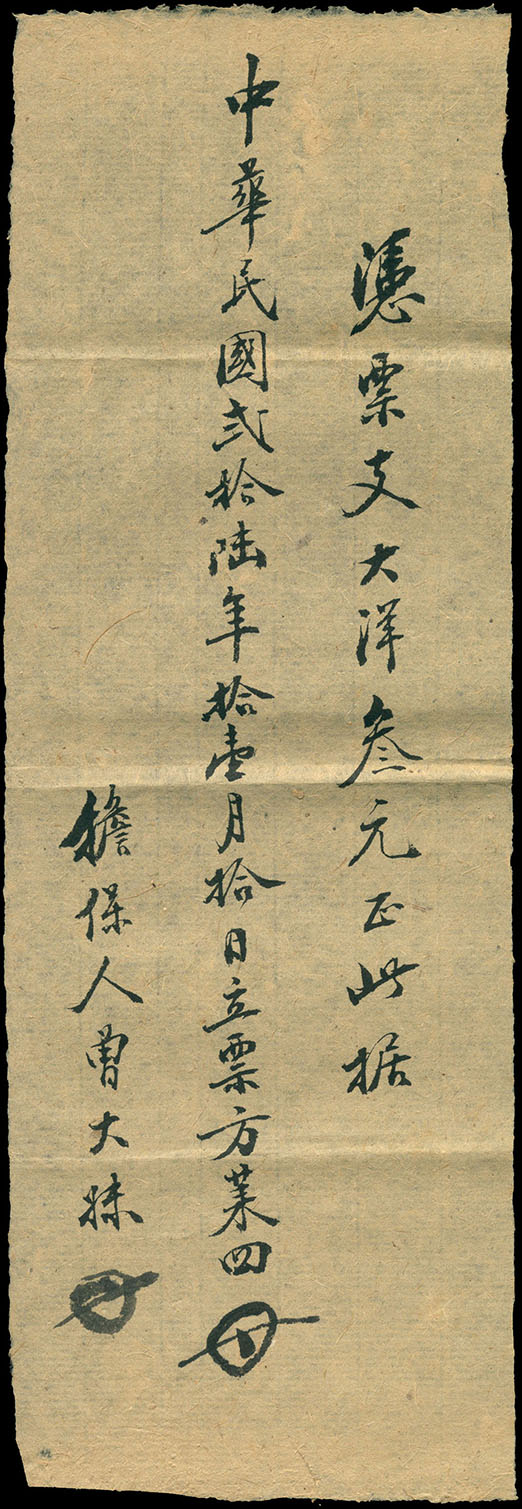 憑票支大洋叁元正此据
中華民國弍拾陸年拾壹月拾日立票方業四
擔保人曹大妹